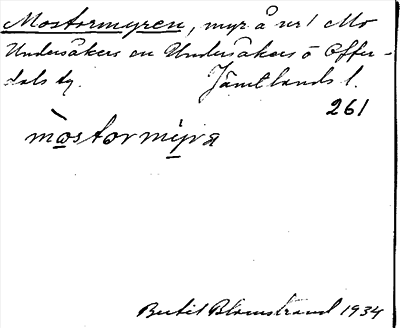 Mostormyren, myr å nr 1 Mo
Undersåkers sn Undersåkers o Offer-
dals tg. Jämtlands l.
261
mòstormýra
Bertil Blomstrand 1934